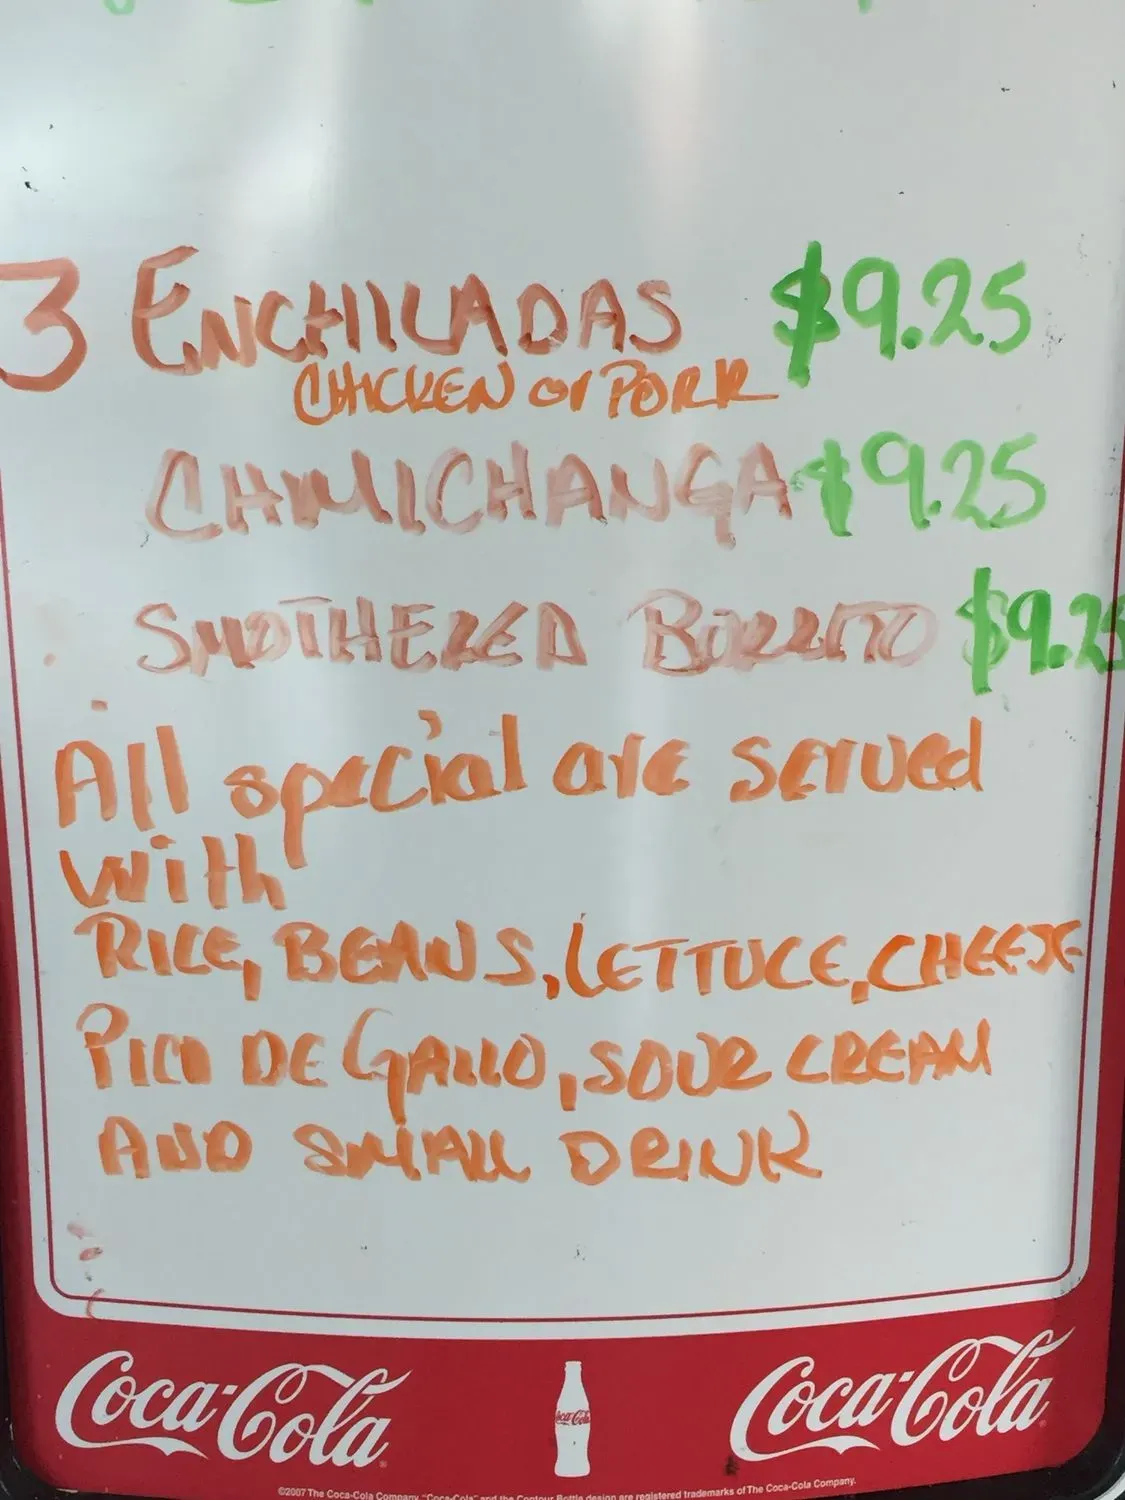 3 ENCHILADAS $9.25
CHICKEN or PORK
CHIMICHANGA $9.25
SMOTHERED BURRITO $9.25
All special are served
with
RICE, BEANS, LETTUCE, CHEESE
PICO DE GALLO, SOUR CREAM
AND SMALL DRINK
Coca-Cola Coca-Cola Coca-Cola
©2007 The Coca-Cola Company. "Coca-Cola" and the Contour Bottle design are registered trademarks of The Coca-Cola Company.